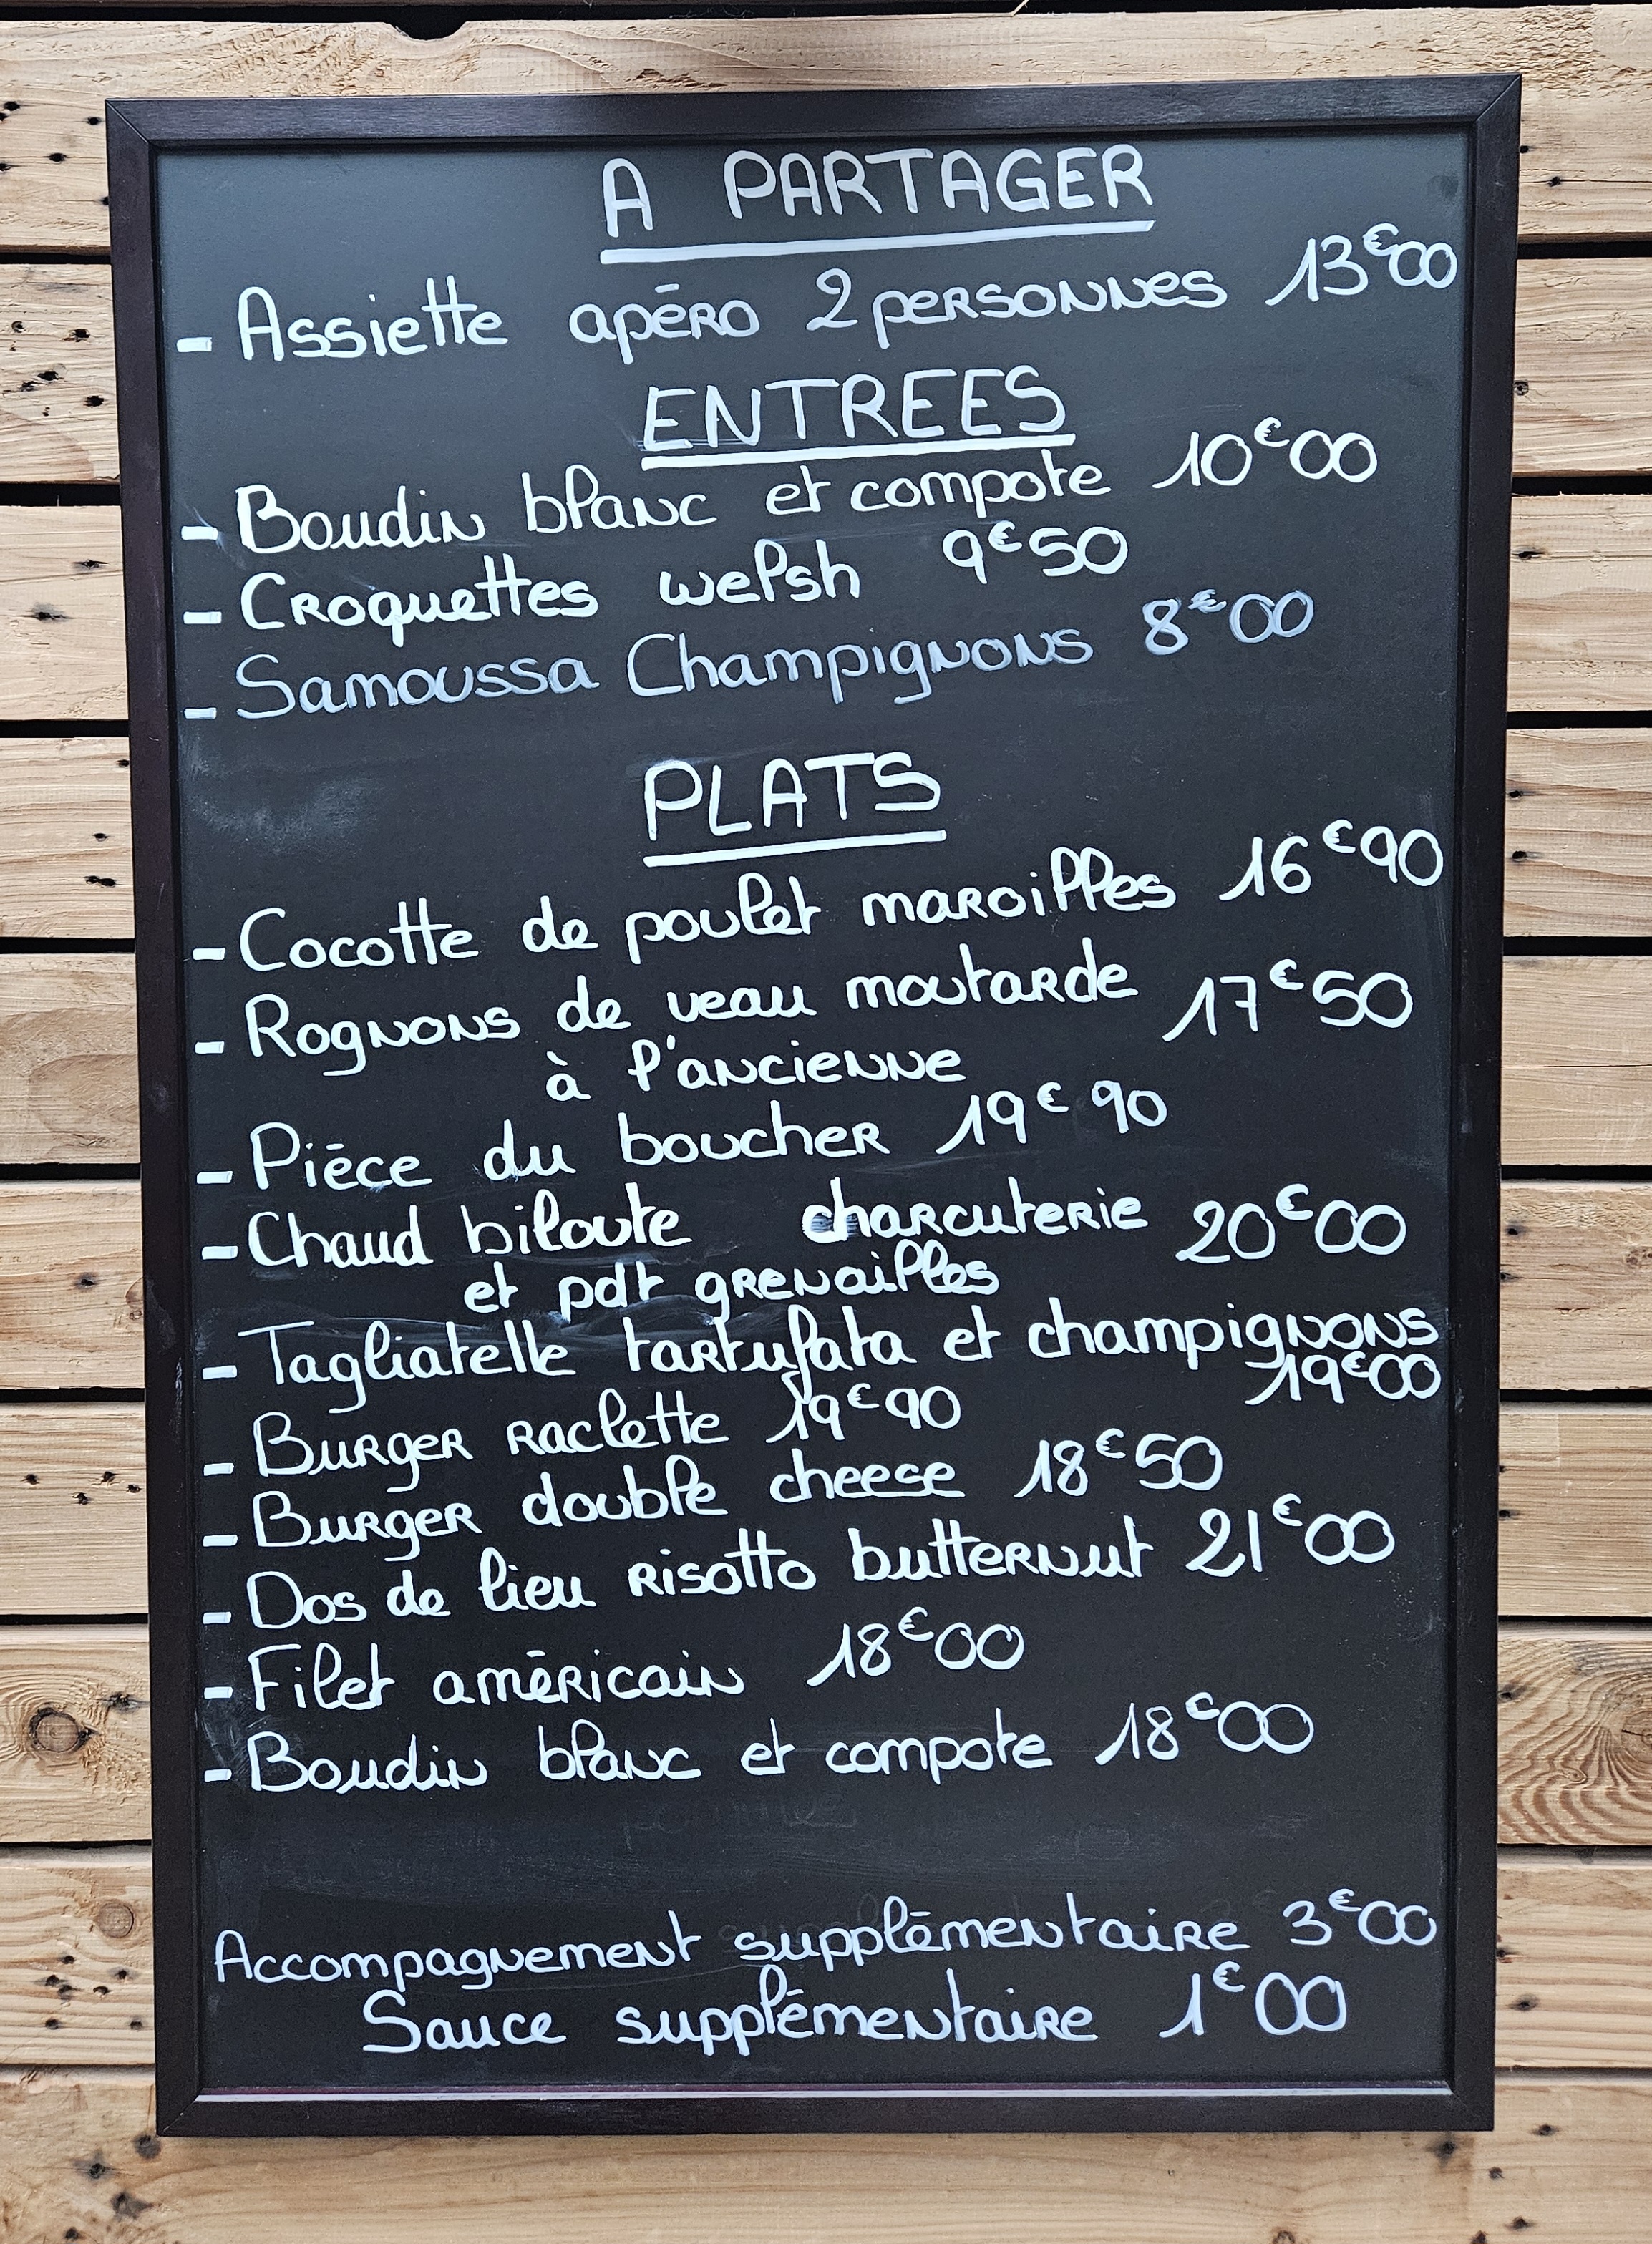 A PARTAGER
- Assiette apéro 2 personnes 13€00
ENTREES
- Boudin blanc et compote 10€00
- Croquettes welsh 9€50
- Samoussa Champignons 8€00
PLATS
- Cocotte de poulet maroilles 16€90
- Rognons de veau moutarde 17€50
à l'ancienne
- Pièce du boucher 19€90
- Chaud biloute charcuterie 20€00
et pdt grenailles
- Tagliatelle tartufata et champignons
19€00
- Burger raclette 19€90
- Burger double cheese 18€50
- Dos de lieu risotto butternut 21€00
- Filet américain 18€00
- Boudin blanc et compote 18€00
Accompagnement supplémentaire 3€00
Sauce supplémentaire 1€00